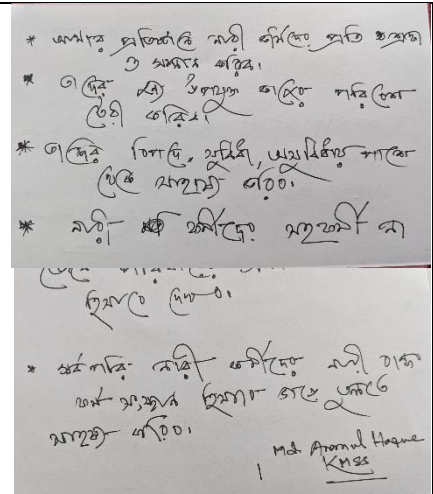 * আমার প্রতিষ্ঠানে নারী কর্মিদের প্রতি শ্রদ্ধা
ও সম্মান করিব।
* তাদের জন্য উপযুক্ত কাজের পরিবেশ
তৈরী করিব।
* তাদের বিপদে, সুবিধা, অসুবিধায় পাশে
থেকে সাহায্য করিব।
* নারী কর্মীদের সহকর্মী না
হিসাবে দেখব।
* সর্বপরি নারী কর্মীদের নারী
কর্ম হিসাবে গড়ে তুলতে
সাহায্য করিব।
Md. Aromul Haque
KMSS